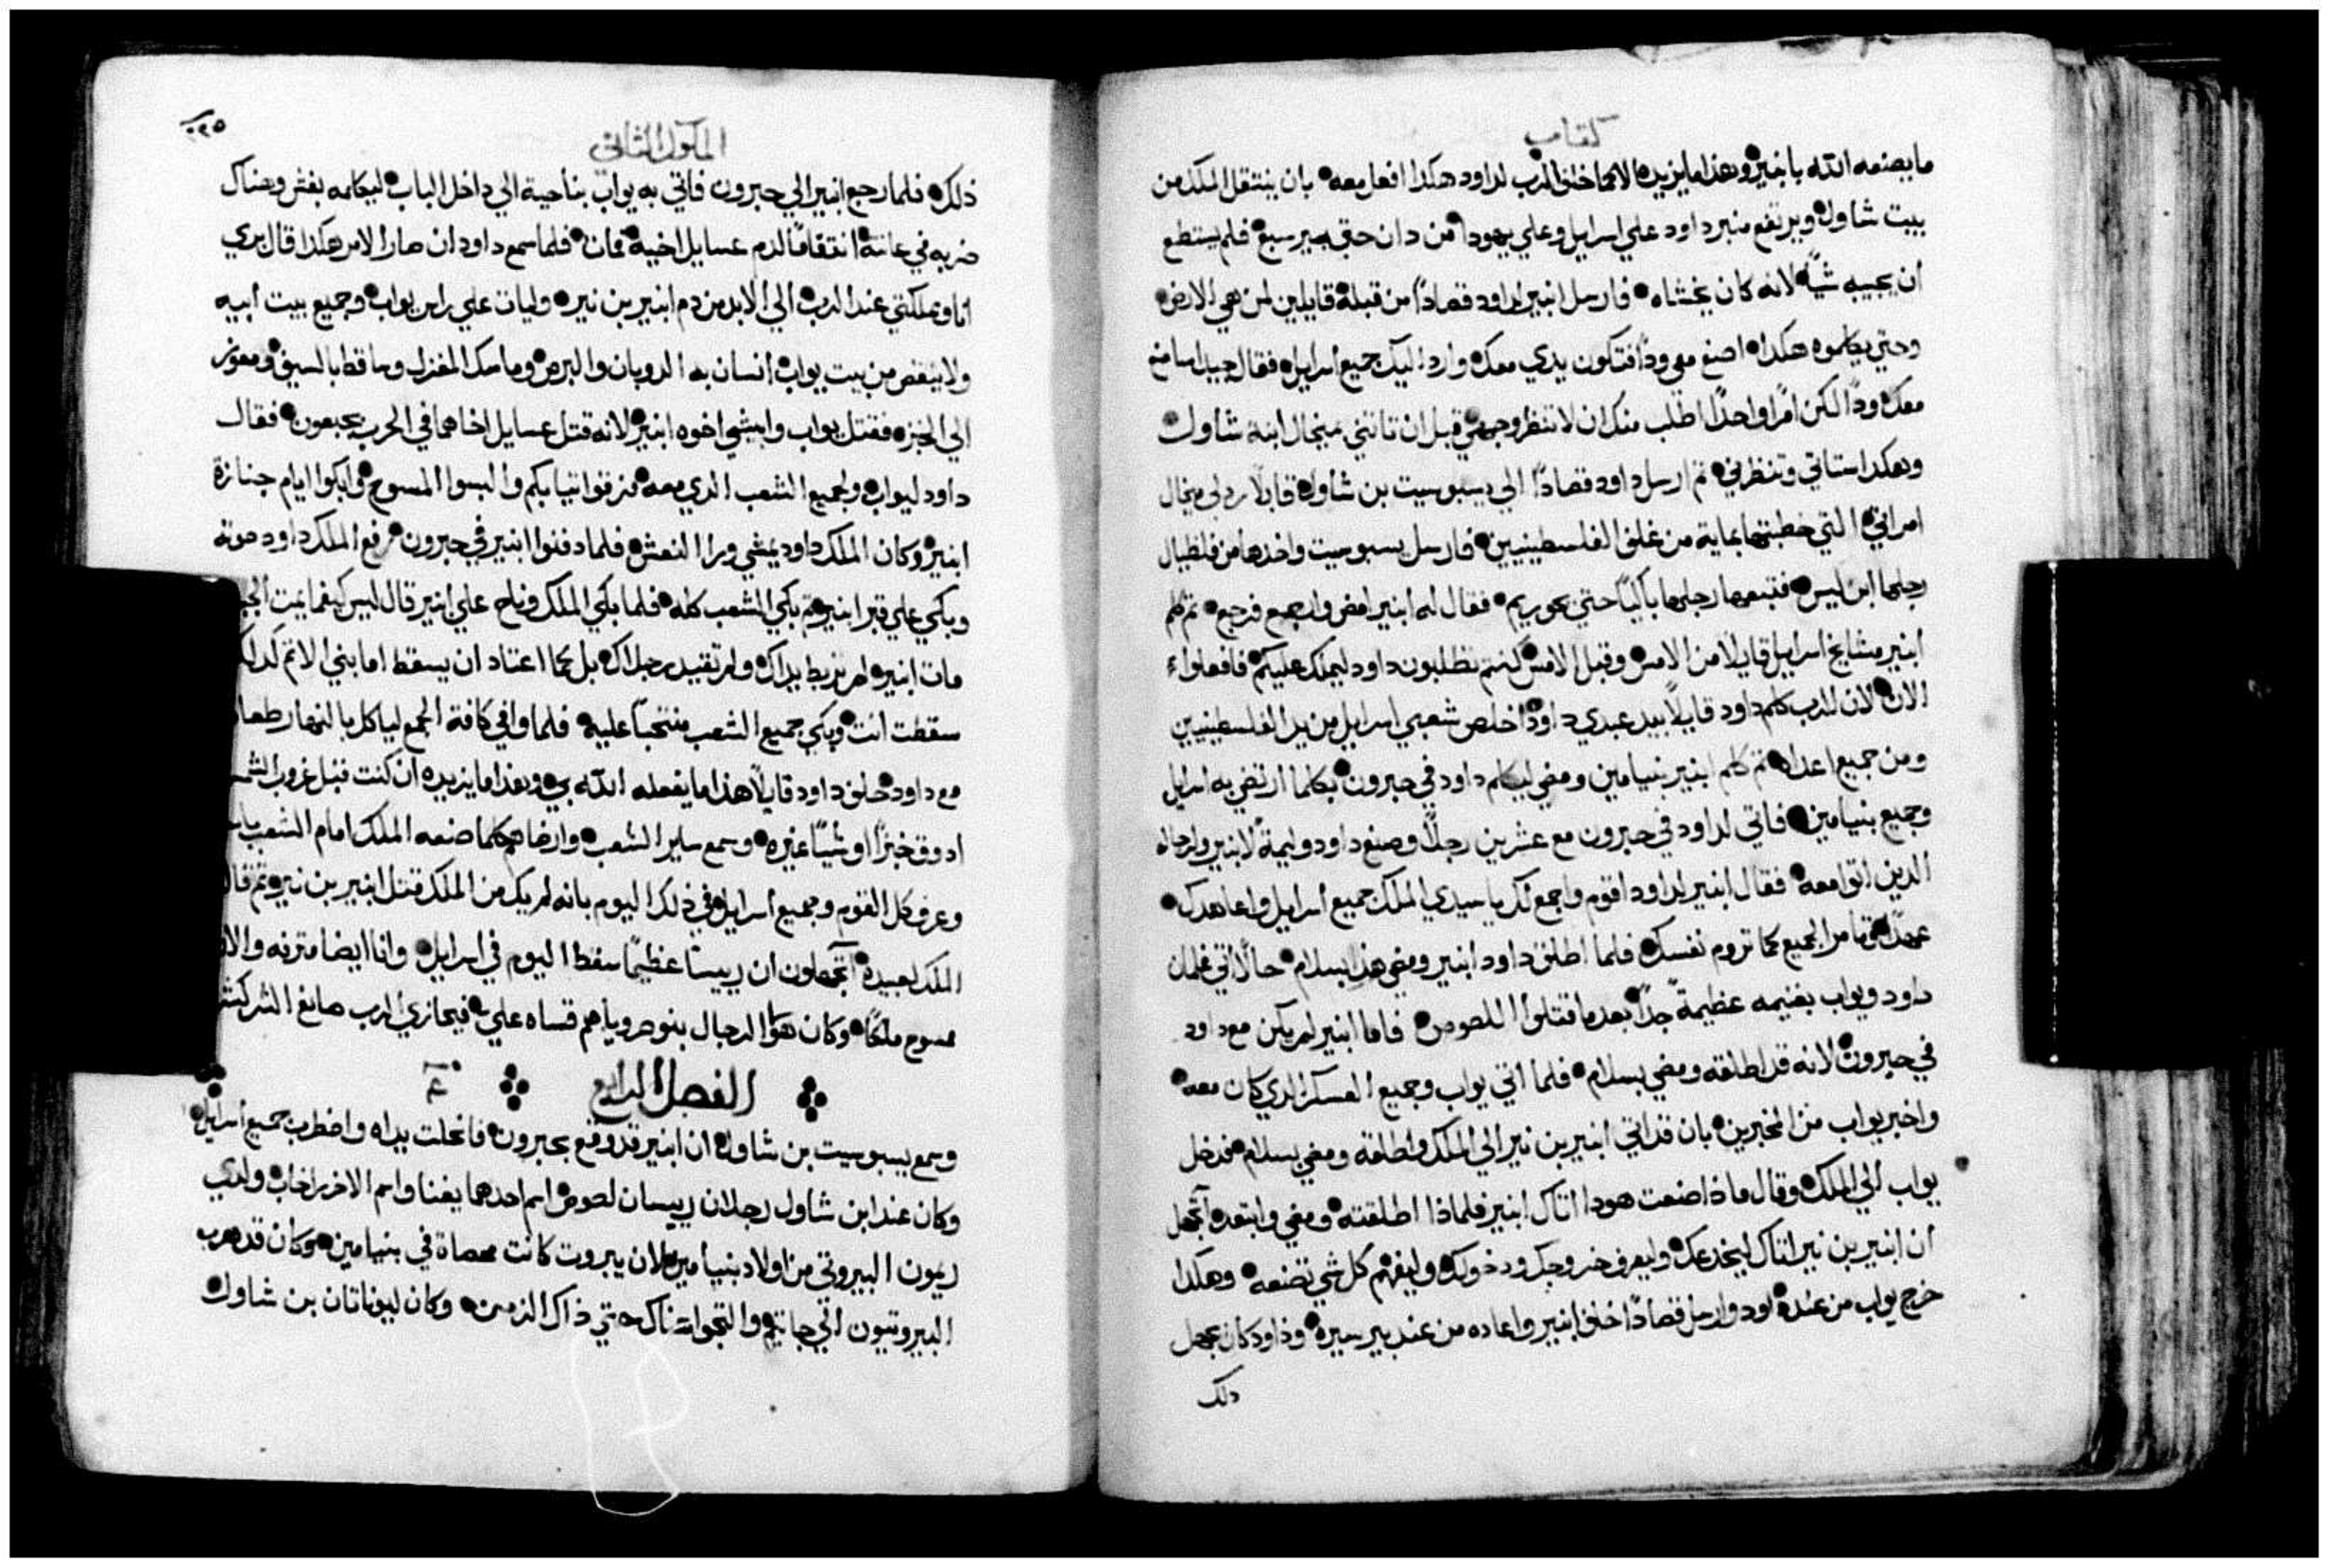 كتاب
ما يصنعه الله بابنير وهذا ما يزيده الا كما حلف الرب لداود هكدا افعل معه بان ينتقل الملك من
بيت شاول ويرتفع منبر داود علي اسرايل وعلي يهودا من دان حتي بير سبع فلم يستطع
ان يجيبه شيًا لانه كان يخشاه فارسل ابنير لداود قصادًا من قبله قايلين لمن هي الارض
وحتي يكلموه هكدا اصنع معي ودًا فتكون يدي معك وارد اليك جميع اسرايل فقال جيد انا اصنع
معك ودًا لكن امرًا واحدًا اطلب منك ان لا تنظر وجهي قبل ان تاتني ميخال ابنة شاول
وهكدا ستاتي وتنظرني تم ارسل داود قصادًا الي يسبوسيت بن شاول قايلًا رد لي ميخال
امراتي التي خطبتها بماية من غلف الفلسطينيين فارسل يسبوسيت واخدها من فلطيال
رجلها ابن ليس فتبعها رجلها باكيًا حتي بحوريم فقال له ابنير امض وارجع فرجع تم كلم
ابنير مشايخ اسرايل قايلًا من الامس وقبل الامس كنتم تطلبون داود ليملك عليكم فافعلوا
الان لان الرب كلم داود قايلًا بيد عبدي داود اخلص شعبي اسرايل من يد الفلسطينيين
ومن جميع اعداه تم كلم ابنير بنيامين ومضي ليكلم داود في حبرون بكلما ارتضي به اسرايل
وجميع بنيامين فاتي لداود في حبرون مع عشرين رجلًا وصنع داود وليمة لابنير ولرجاله
الدين اتوا معه فقال ابنير لداود اقوم واجمع لك يا سيدي الملك جميع اسرايل واعاهدك
عهدًا وتامر الجميع كما تروم نفسك فلما اطلق داود ابنير ومضي هدا بسلام حالًا اتي غلمان
داود ويواب بغنيمه عظيمة جدًا بعد ما قتلوا اللصوص فاما ابنير لم يكن مع داود
في حبرون لانه قد اطلقه ومضي بسلام فلما اتي يواب وجميع العسكر الدي كان معه
واخبر يواب من المخبرين بان قد اتي ابنير بن نير الي الملك واطلقه ومضي بسلام فدخل
يواب الي الملك وقال ماذا صنعت هودا اتاك ابنير فلماذا اطلقته ومضي وابتعد اتجهل
ان ابنير بن نير اتاك ليخدعك وليعرف خروجك ودخولك وليفهم كل شي تصنعه وهكدا
خرج يواب من عند داود وارسل قصادًا خلف ابنير واعاده من عند بير سيره وداود كان يجهل
دلك
الملوك الثاني
ذلك فلما رجع ابنير الي حبرون فاتي به يواب بناحية الي داخل الباب ليكلمه بغش وهناك
ضربه في عانته انتقامًا لدم عسايل اخيه فمات فلما سمع داود ان صار الامر هكدا قال بري
انا ومملكتي عند الرب الي الابد من دم ابنير بن نير وليات علي راس يواب وجميع بيت ابيه
ولا ينقص من بيت يواب انسان به الدوبان والبرص وماسك المغزل وساقط بالسيف ومعوز
الي الخبز فقتل يواب وابيشي اخوه ابنير لانه قتل عسايل اخاهما في الحرب بجبعون فقال
داود ليواب ولجميع الشعب الدي معه مزقوا تيابكم والبسوا المسوح وابكوا امام جنازة
ابنير وكان الملك داود يمشي ورا النعش فلما دفنوا ابنير في حبرون رفع الملك داود صوته
وبكي علي قبر ابنير تم بكي الشعب كله فلما بكي الملك وناح علي ابنير قال ليس كيفما يمت
مات ابنير لم تربط يداك ولم تقيد رجلاك بل كما اعتاد ان يسقط امام بني الاتم
سقطت انت وبكي جميع الشعب منتحبًا عليه فلما وافي كافة الجمع لياكل بالنهار
مع داود حلف داود قايلًا هذا ما يفعله الله بي وهذا ما يزيده ان كنت قبل غروب
ادوق خبزًا او شيًا غيره وسمع ساير الشعب وارضاهم كلما صنعه الملك امام الشعب
وعرف كل القوم وجميع اسرايل في ذلك اليوم بانه لم يكن من الملك قتل ابنير بن نير تم قال
الملك لعبيده اتجهلون ان رييسًا عظيمًا سقط اليوم في اسرايل وانا ايضا مترفه
ممسوح ملكًا وكان هولا الرجال بنو صروياهم قساه علي فيجازي الرب صانع الشر
الفصل الرابع ٤
وسمع يسبوسيت بن شاول ان ابنير قد وقع بحبرون فانحلت يداه واضطرب جميع اسرايل
وكان عند ابن شاول رجلان رييسان لصوص اسم احدهما بعنا واسم الاخر راخاب ولدي
ريمون البيروتي من اولاد بنيامين لان بيروت كانت محصاة في بنيامين وكان قد هرب
البيروتيون الي جاتيم والتجوا هناك حتي ذاك الزمن وكان ليوناتان بن شاول